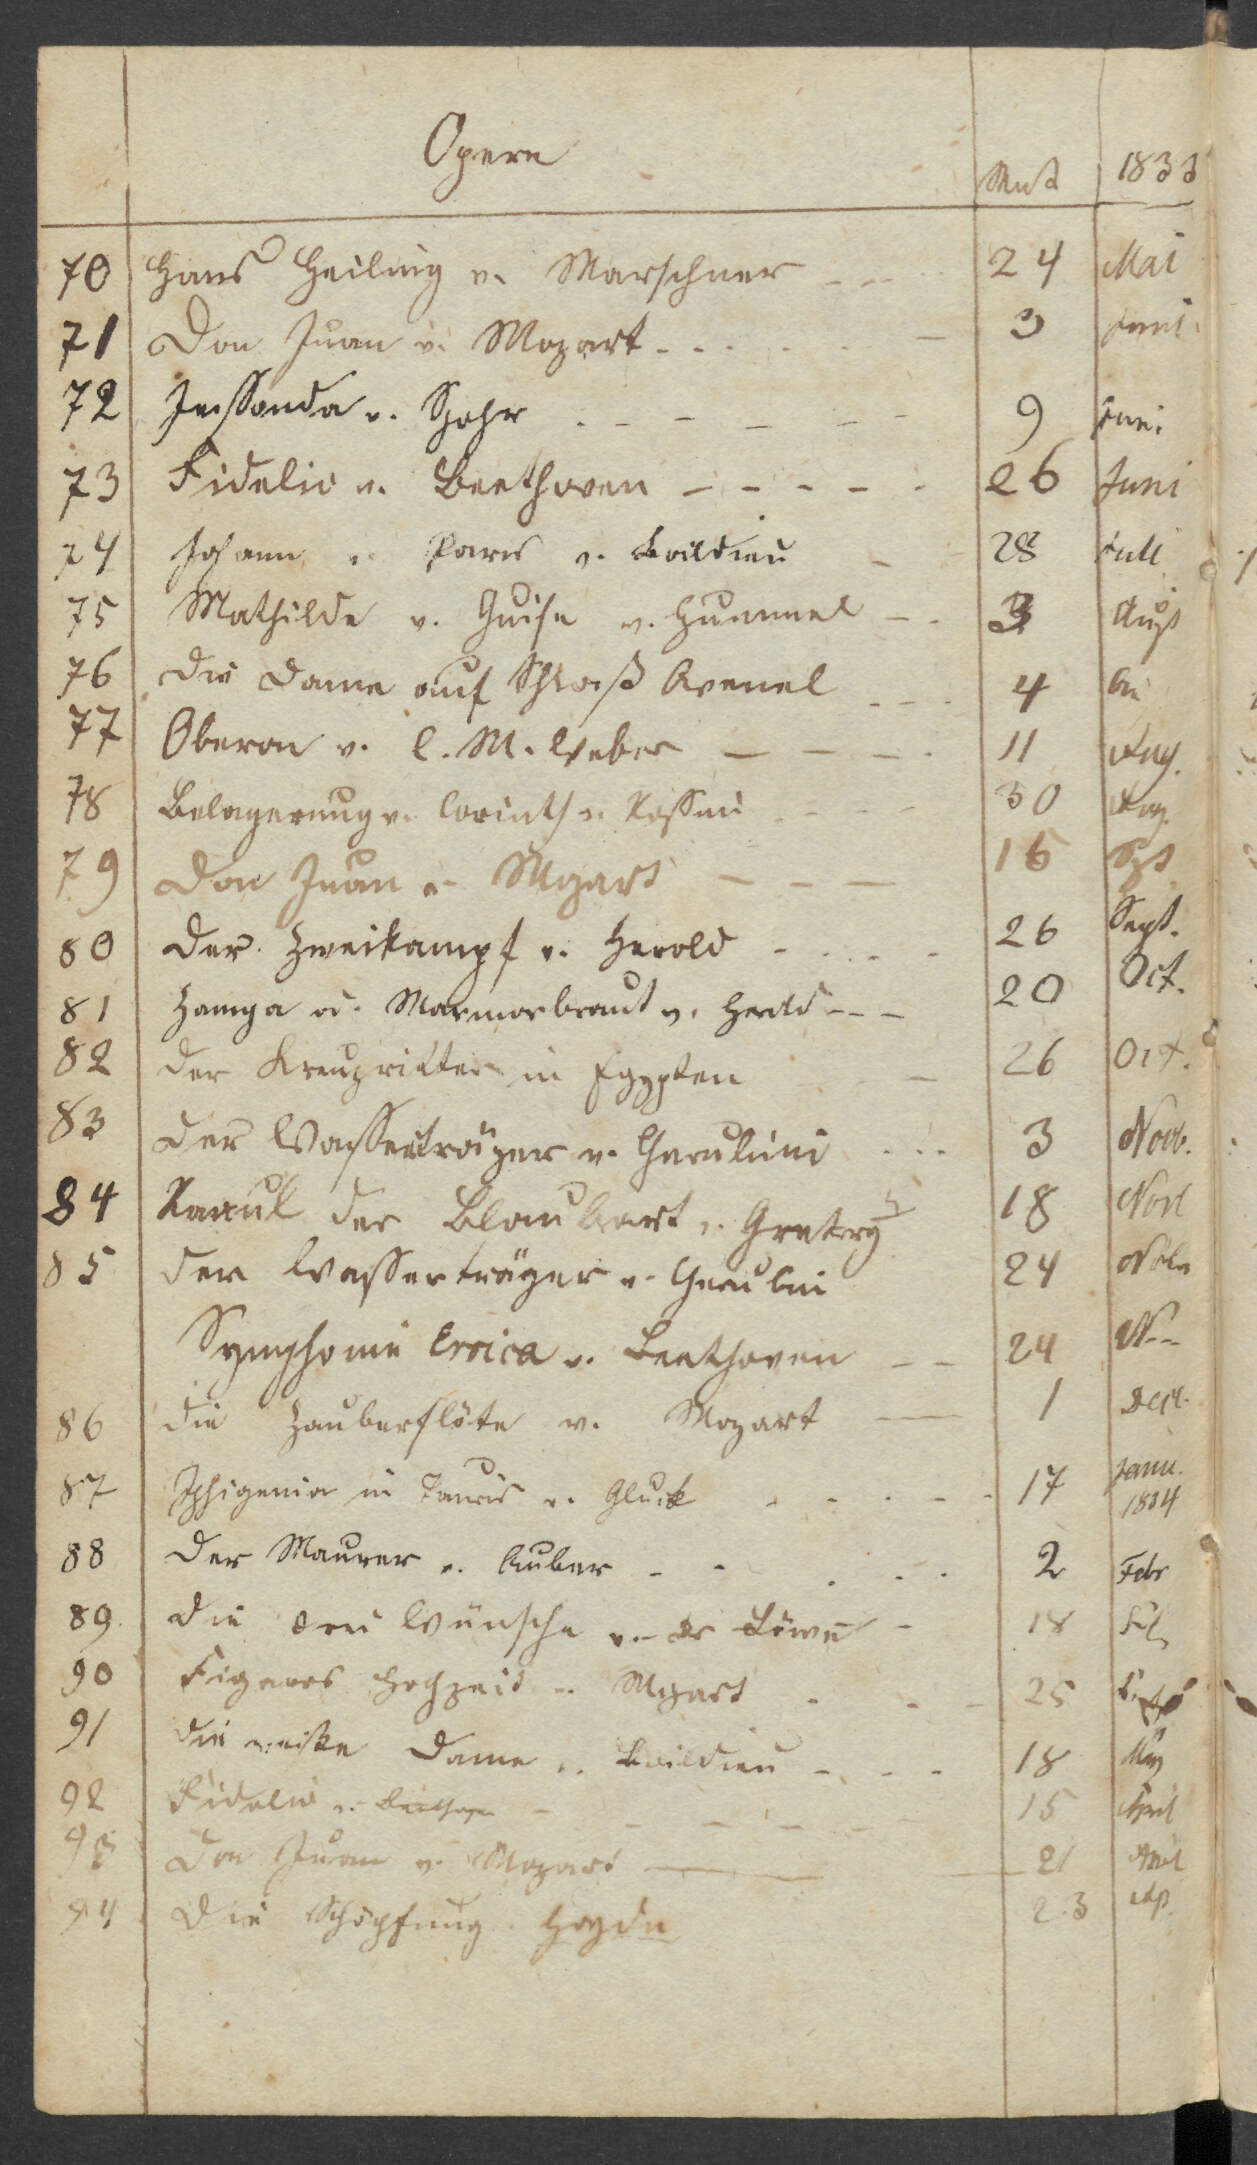 Opern 1833
70 Hans Heiling v. Marschner --- 24 Mai
71 Don Juan v. Mozart - - - - - 3 Juni
72 Jessonda v. Spohr - - - - - 9 Juni
73 Fidelio v. Beethoven - - - - - 26 Juni
74 Johann v. Paris v. Boildieu - 28 Juli
75 Mathilde v. Guise v. Hummel - - 3 Aug
76 Die Dame auf Schloß Avenel --- 4
77 Oberon v. C. M. Weber - - - - 11 Aug.
78 Belagerung v. Corinth v. Rossini - - - 30 Aug.
79 Don Juan v. Mozart - - - 16 Spt
80 Der Zweikampf v. Herold - - - - - 26 Sept.
81 Zampa od. Marmorbraut v. Herold - - - 20 Oct.
82 Der Kreuzritter in Egypten - 26 Oct.
83 Der Wasserträger v. Cherubini - - - 3 Novb.
84 Raoul der Blaubart v. Gretry 18 Nov
85 Der Wasserträger v. Cherubini 24 Nov
Symphonie Eroica v. Beethoven - - 24 N--
86 Die Zauberflöte v. Mozart - 1 Dec.
87 Iphigenia in Tauris v. Gluck - - - - - 17 Janu. 1834
88 Der Maurer v. Auber - - - - - 2 Febr
89. Die drei Wünsche v. Löwe - 18 Feb
90 Figaros Hochzeit v. Mozart - - - 25
91 Die weiße Dame v. Boildieu - - - 18
92 Fidelio v. Beethoven - - - - - 15 April
93 Don Juan v. Mozart - - 21 April
94 Die Schöpfung. Haydn 23 Ap.